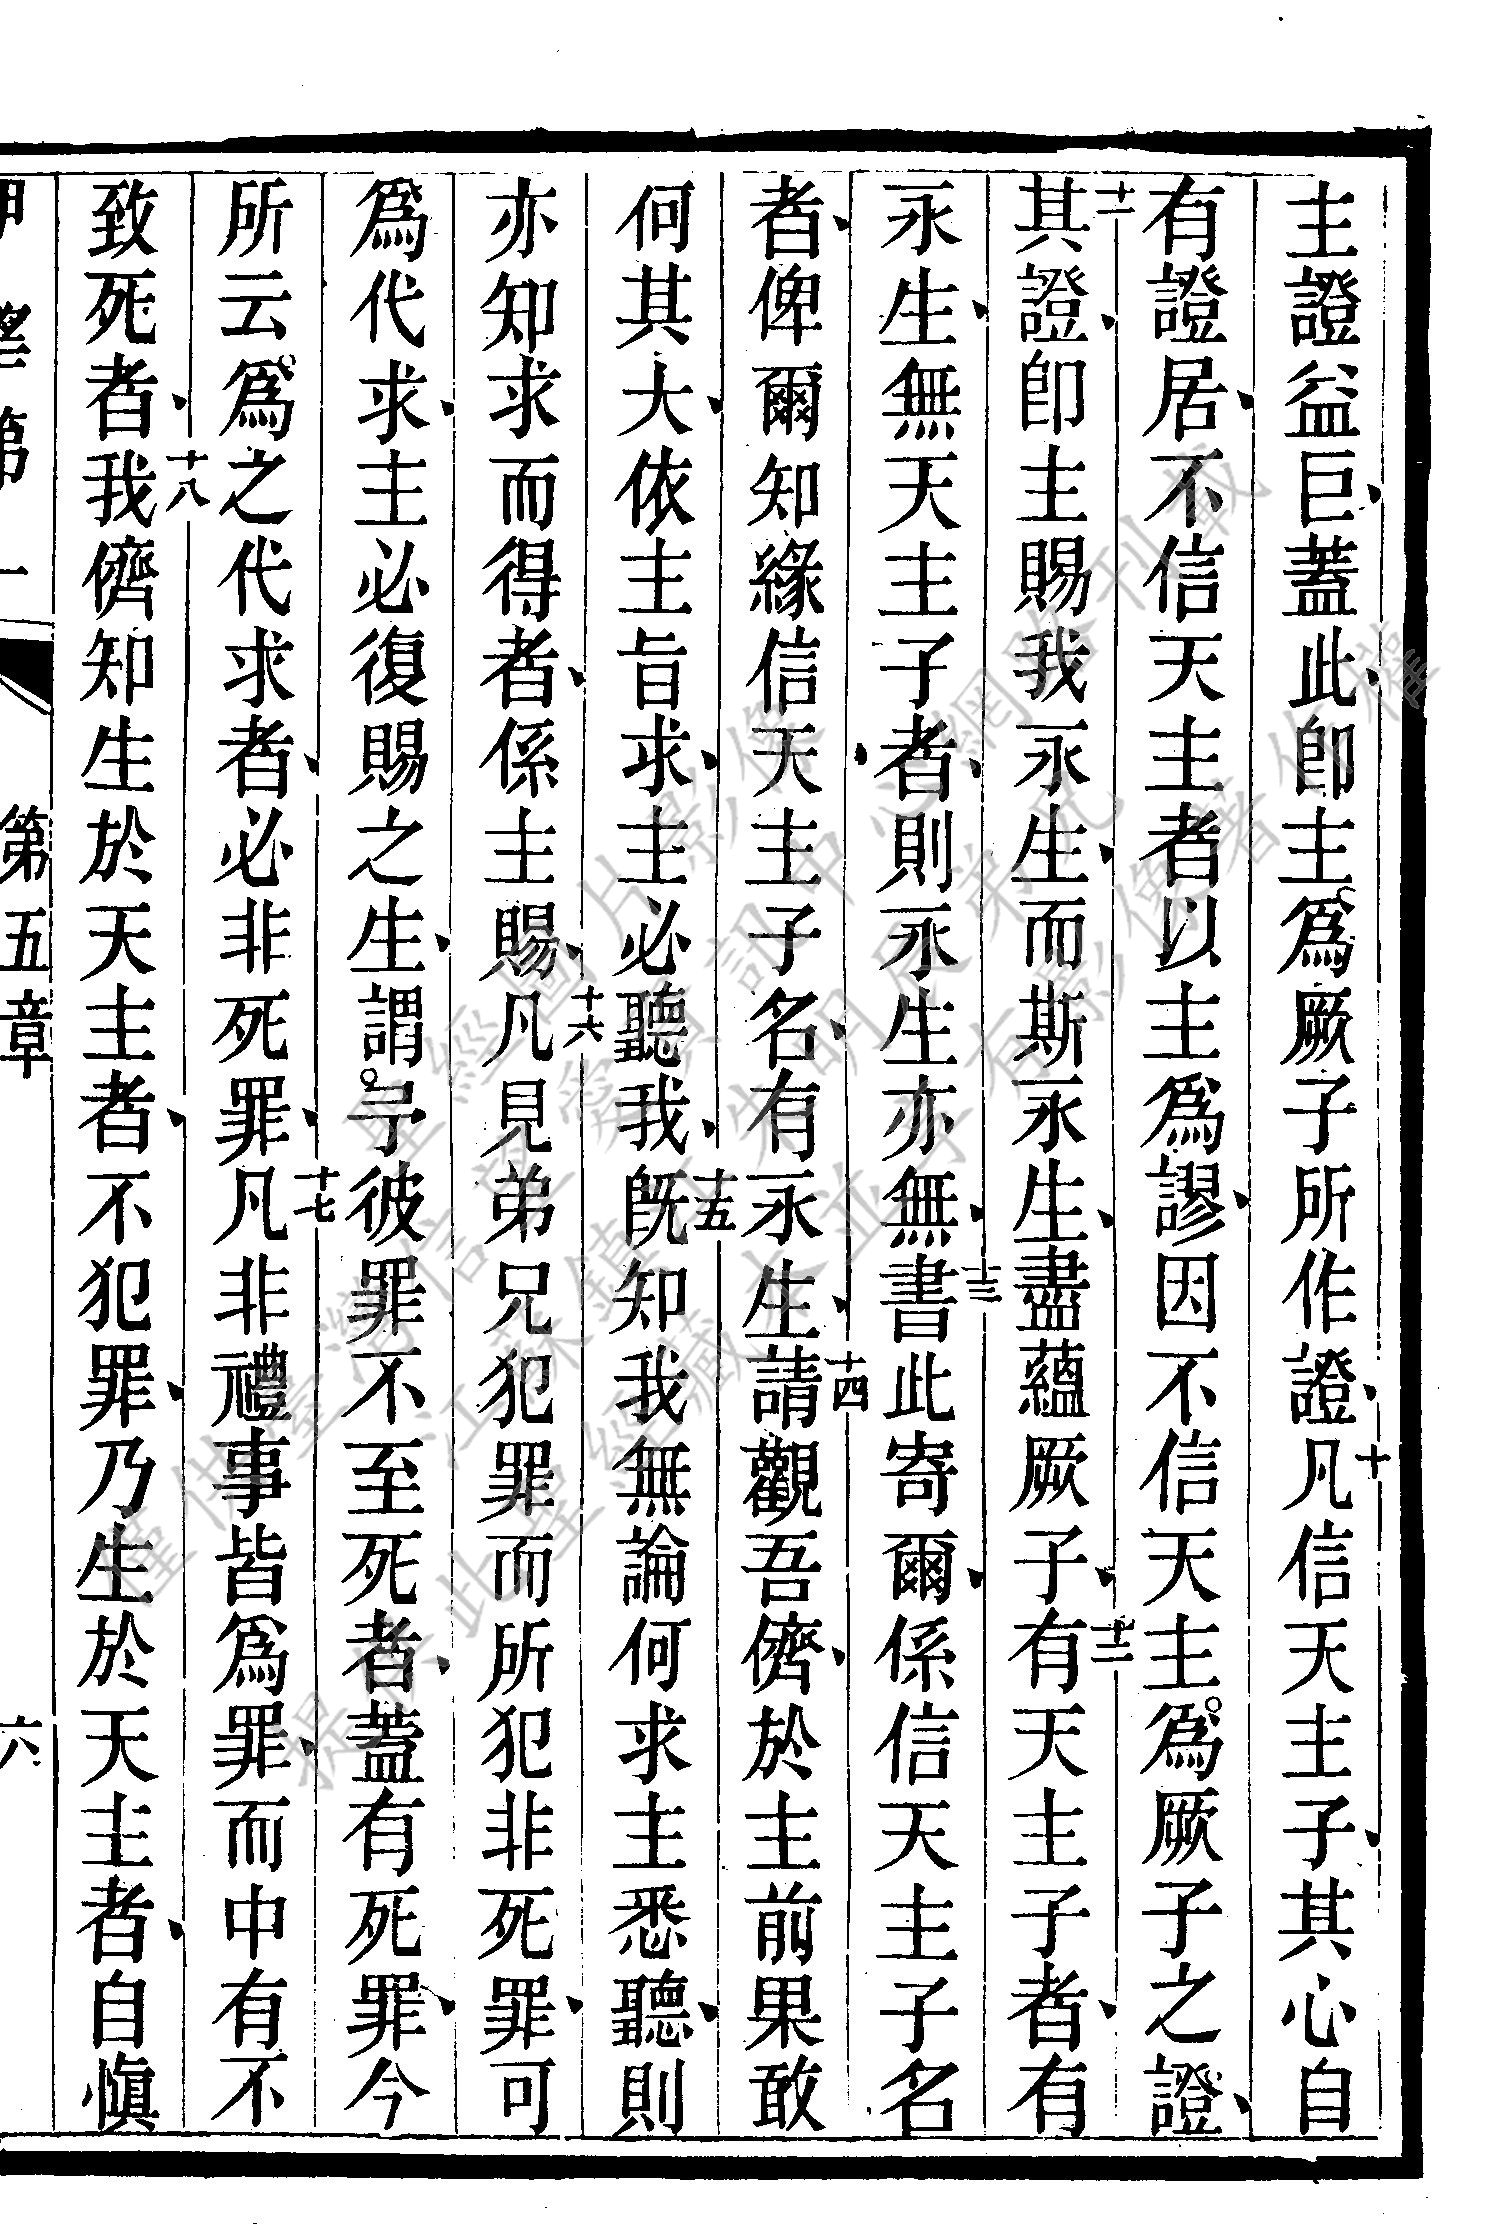 主證益巨、蓋此、卽主爲厥子所作證、十凡信天主子、其心自
有證居、不信天主者以主爲謬、因不信天主爲厥子之證、
十一其證、卽主賜我永生、而斯永生、盡蘊厥子、十二有天主子者、有
永生、無天主子者、則永生亦無、十三書此寄爾、係信天主子名
者、俾爾知緣信天主子名、有永生、十四請觀吾儕、於主前果敢
何其大、依主旨求、主必聽我、十五旣知我無論何求主悉聽、則
亦知求而得者、係主賜、十六凡見弟兄犯罪而所犯非死罪、可
爲代求、主必復賜之生、謂予彼罪不至死者、蓋有死罪、今
所云爲之代求者、必非死罪、十七凡非禮事皆爲罪、而中有不
致死者、十八我儕知生於天主者、不犯罪、乃生於天主者、自愼
第五章
六
僅供臺灣信望愛資訊中心網路刊載